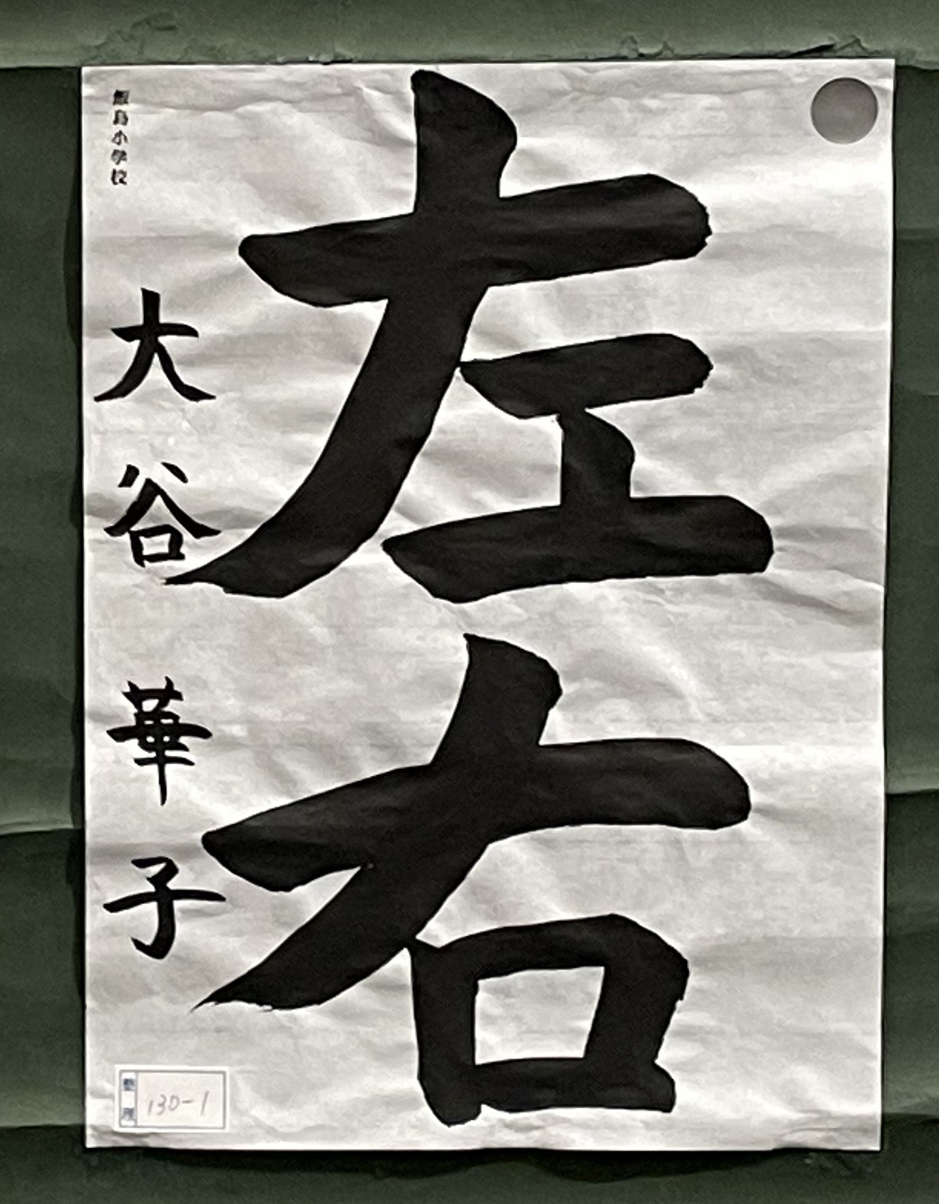 左右
飯島小学校
大谷華子
整理
130-1